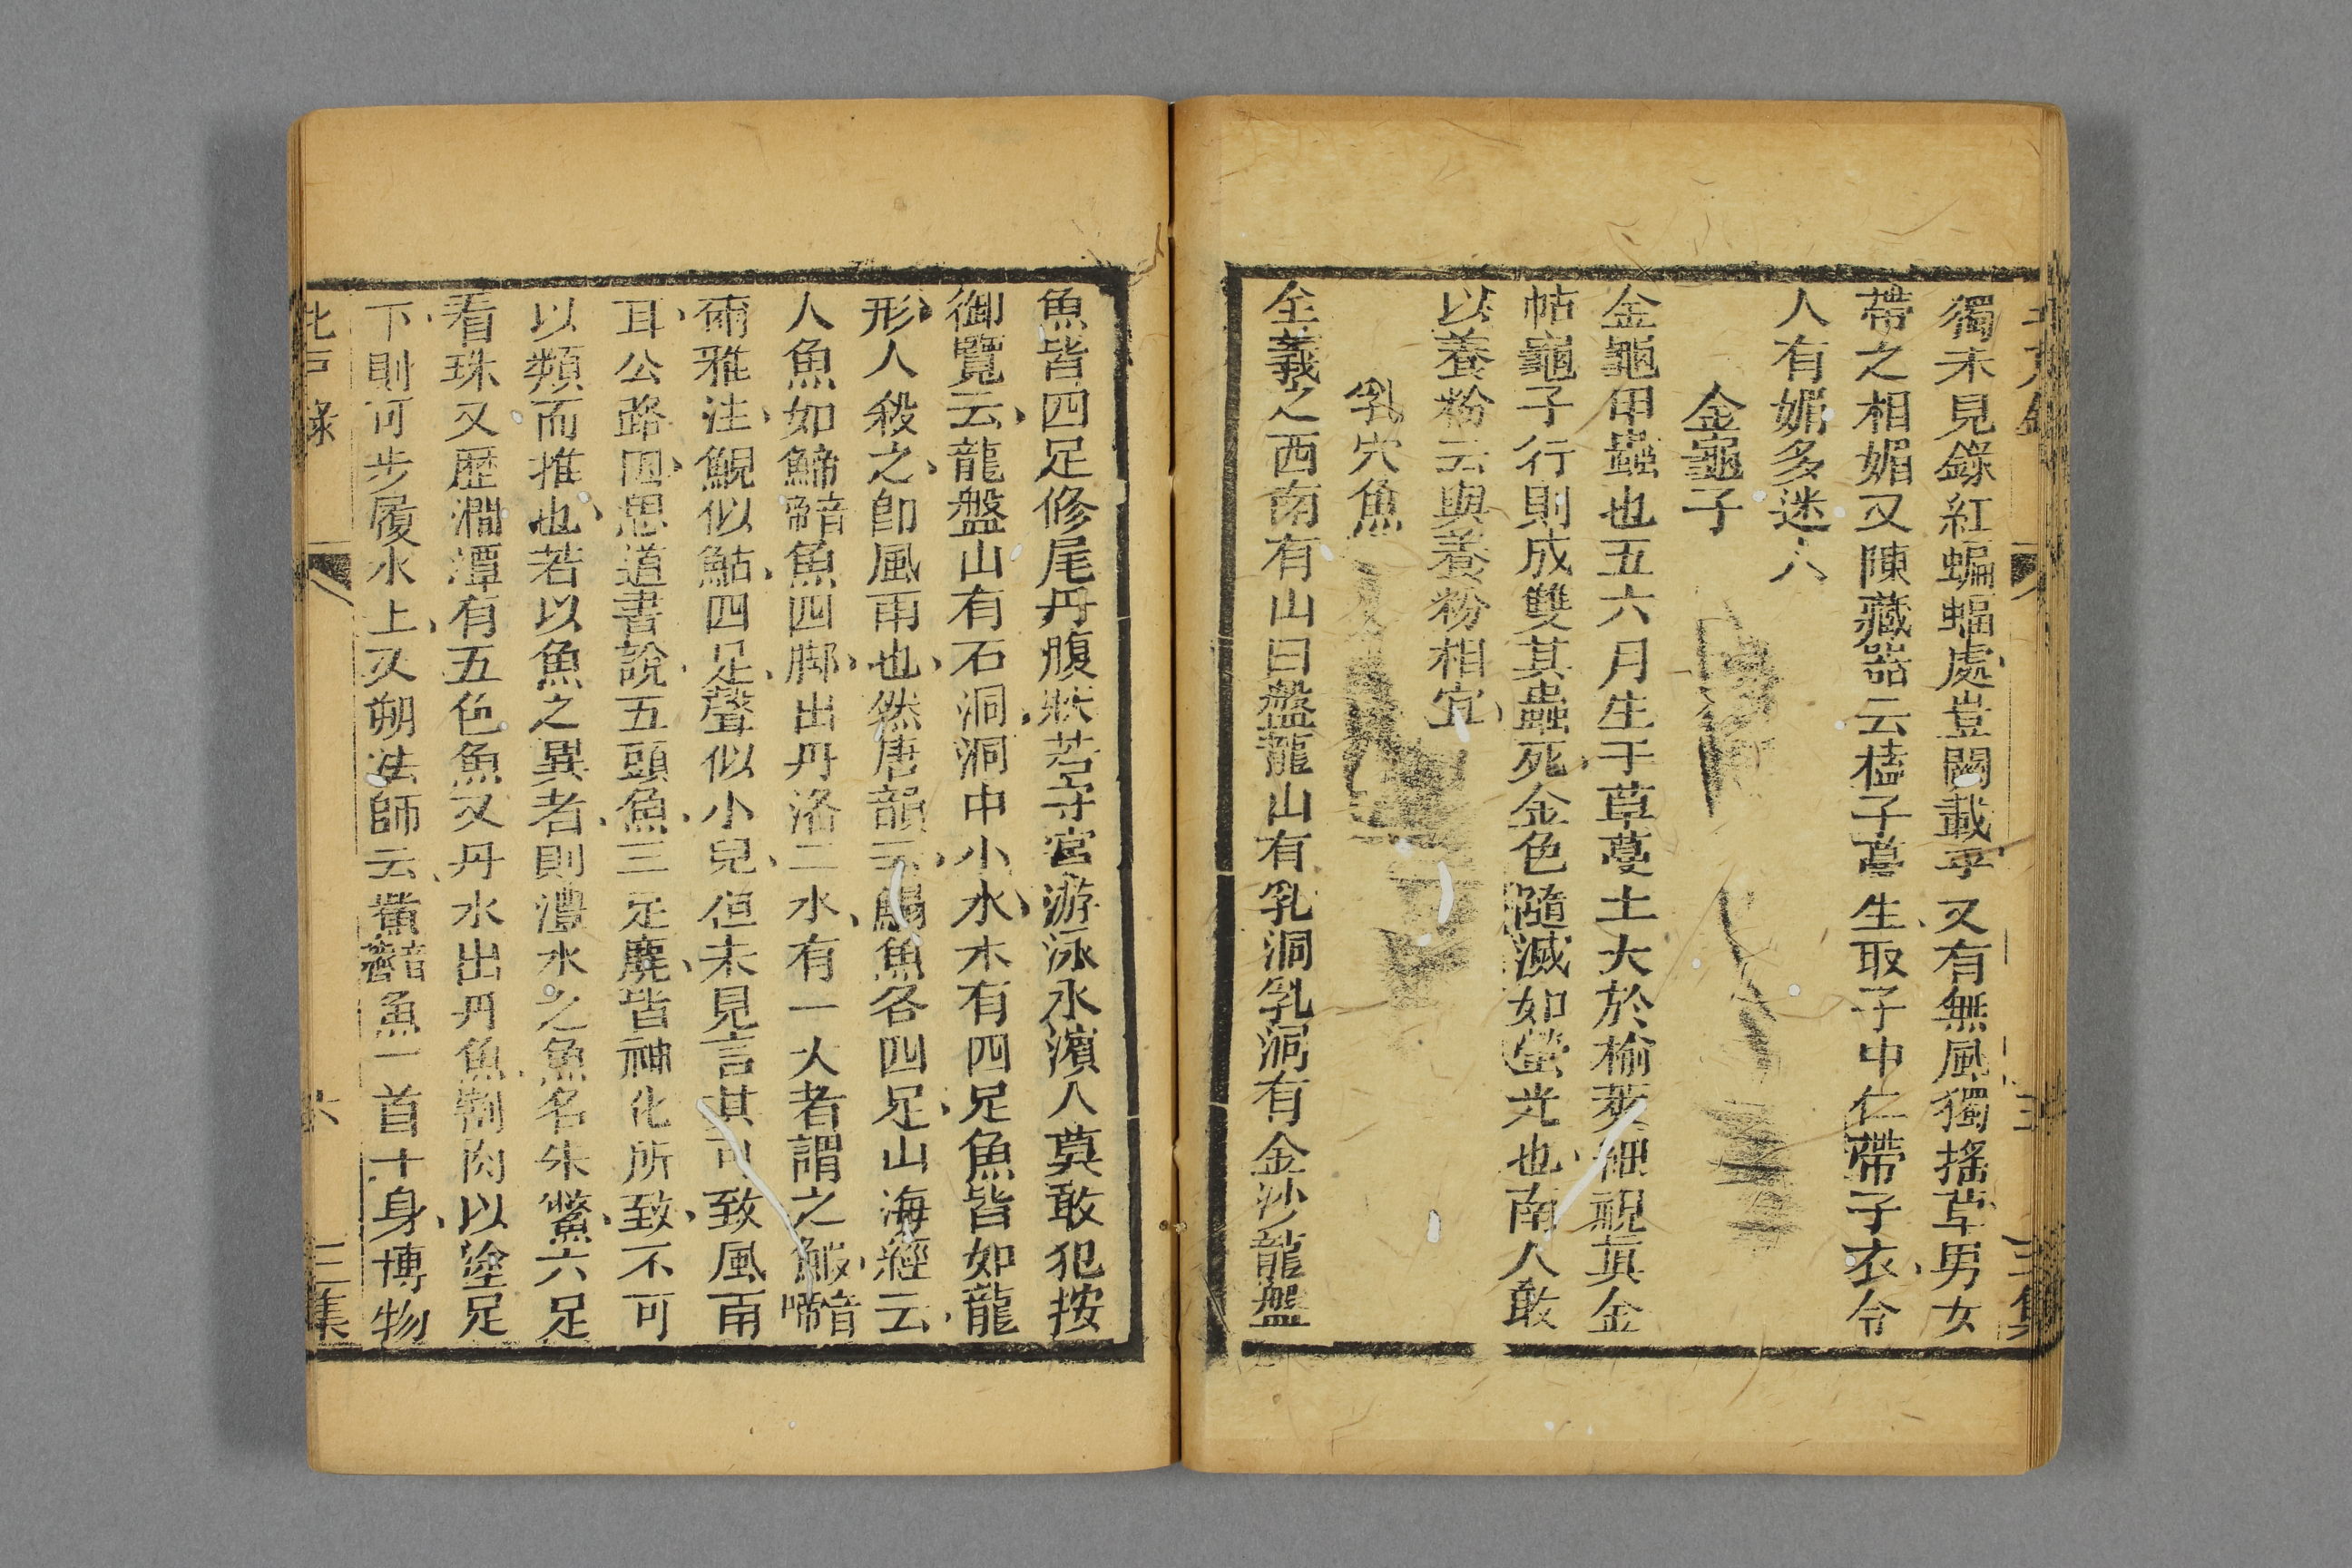 獨未見錄紅蝙蝠處豈闕載乎又有無風獨搖草男女
帶之相媚又陳藏器云榼子蔓生取子中仁帶子衣令
人有媚多迷人
金龜子
金龜甲蟲也五六月生于草蔓土大於榆莢細視真金
帖龜子行則成雙其蟲死金色隨滅如螢光也南人敢
以養粉云與養粉相宜
乳穴魚
全義之西南有山曰盤龍山有乳洞乳洞有金沙龍盤
魚皆四足修尾丹腹狀若守宮游泳水濱人莫敢犯按
御覽云龍盤山有石洞洞中小水水有四足魚皆如龍
形人殺之卽風雨也然唐韻云鰨魚各四足山海經云
人魚如䱱音啼魚四脚出丹洛二水有一大者謂之音啼
爾雅注鯢似鮎四足聲似小兒但未見言其可致風雨
耳公路囘思道書說五頭魚三足麂皆神化所致不可
以類而推也若以魚之異者則澧水之魚名朱鱉六足
看珠又歴澗潭有五色魚又丹水出丹魚割肉以塗足
下則可步履水上又朔法師云鮆音薺魚一首十身博物
北戸錄 六 三集